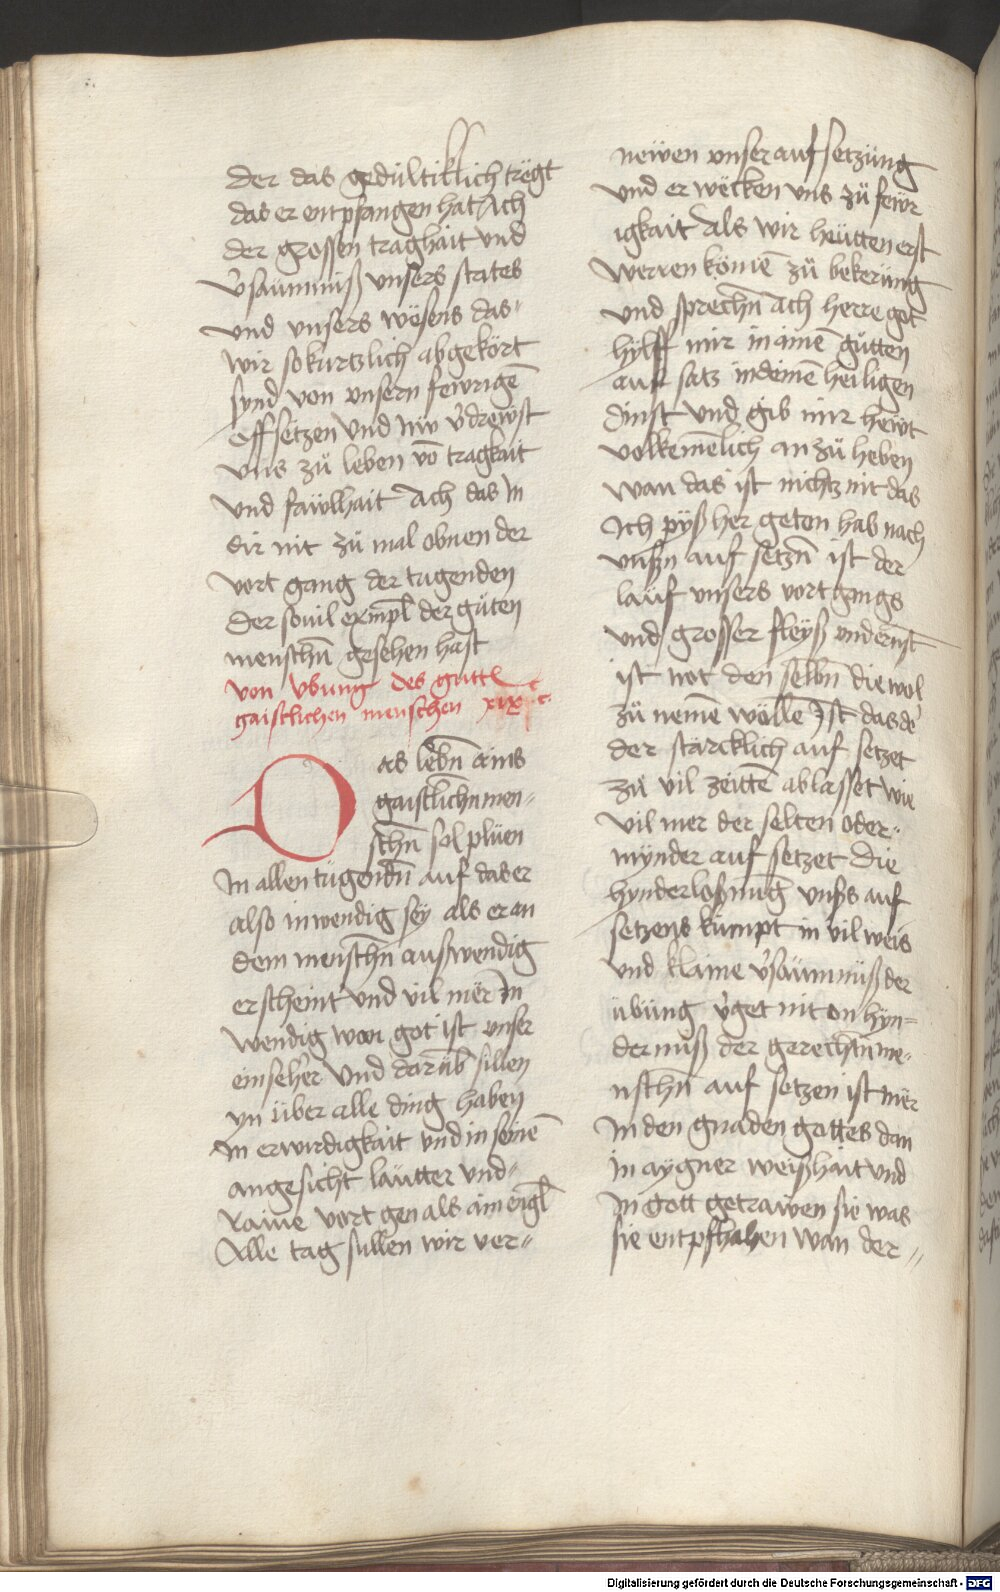 der das gedultiklich tregt
das er entpfangen hat Ach
der grossen traghait und
v̉saümniß unsers states
und unsers wesens das"
wir so kurtzlich abgekört
synd von unsern fewrigē
Off setzen Und nw v̉drewst
uns zü leben vō tragkait
und fawlhait Ach das In
dir nit zü mal obnen der
vort gang der tugenden
Der souil exmpl der güten
menschn̄ gesehen hast
von ubung des gutt
gaistlichen menschen xix c.
Das lebn̄ ains
gaistlichn̄ men-
schn̄ sol plüen
In allen tügendn̄ auf das er
also inwendig sey als er an
dem menschn̄ auswendig
erscheint und vil mer In
wendig wan got ist unser
einseher Und darūb sillen
yn über alle ding haben
In erwirdigkait und in seinē
angesicht lautter und"
Raine vort gen als ain engl
Alle tag sullen wir ver"
newen unser auf setzüng
und erwecken uns zü fewr
igkait Als wir heutten erst
werren kömē zü bekerüng
und sprechn̄ ach herre got
hylff mir in ainē gütten
auf satz in deinē heiligen
dinst und gib mir hewt
volkemēlich an zü heben
wan das ist nichtz nit das
Ich pyß her geton hab nach
unßn auf setzn̄ ist der
lauf unsers vortgangs
und grosser fleyß und ernst
ist not den selbn̄ die wol
zü nemē wöllē Ist das dē
der starcklich auf setzet
zü vil zeittē ablasset wie
vil mer der selten oder"
mynder auf setzet Die
hynderloßnüg unßs auf
setzens kumpt in vil weis
und klaine v̉saümnüß der
übüng v̉get nit on hyn=
dernuß der gerechtn̄ me-
nschn̄ auf setzen ist mer
In den gnaden gottes dan
in aygner weißhait und
In gott getrawen sie was
sie entpfhahen wan der"
Digitalisierung gefördert durch die Deutsche Forschungsgemeinschaft - DFG